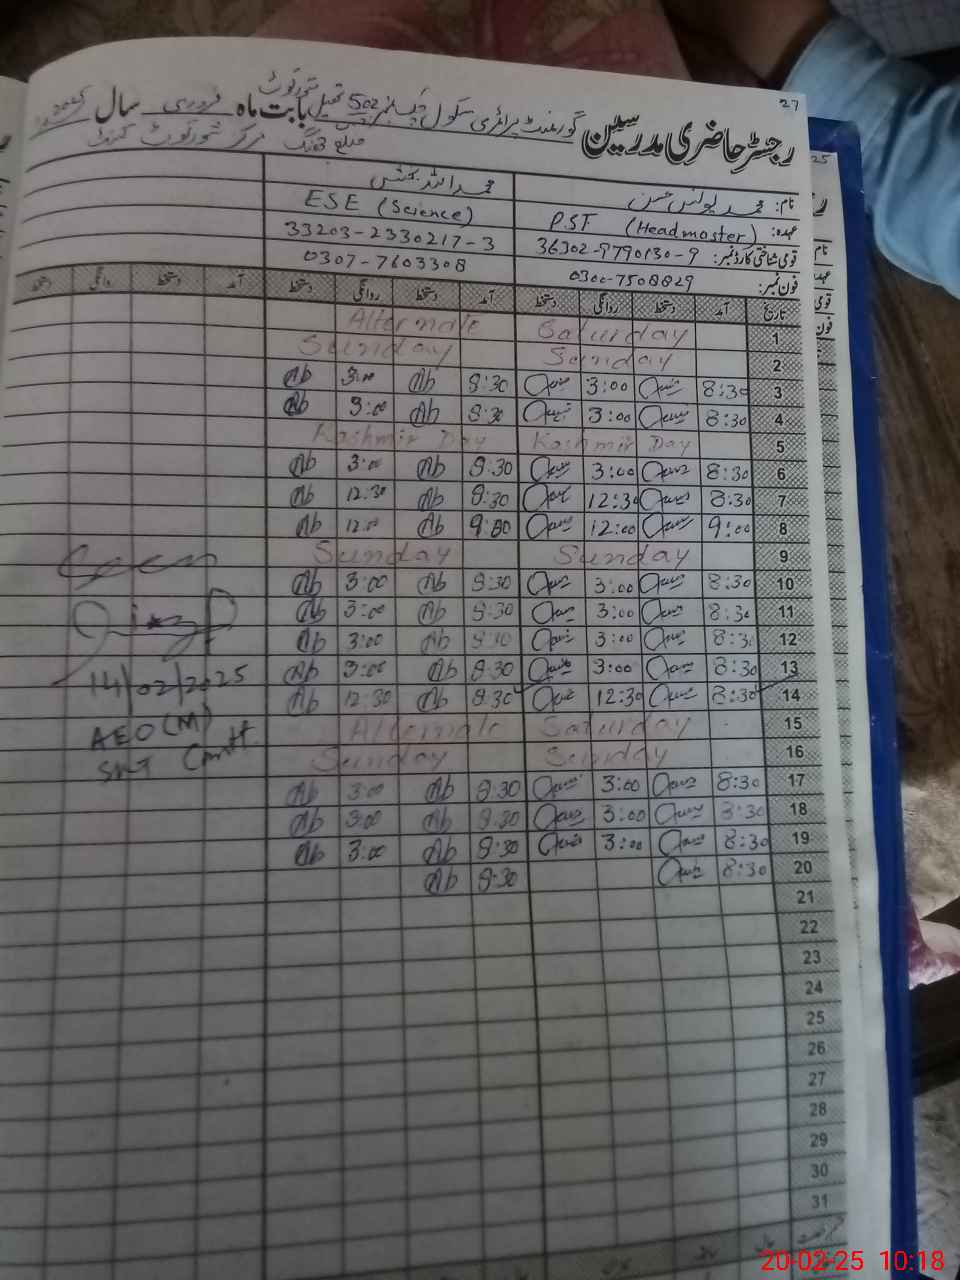 27
رجسٹر حاضری مدرسین گورنمنٹ پرائمری سکول نمبر 502 تحصیل شورکوٹ بابت ماہ فروری سال 2025
ضلع جھنگ مرکز شورکوٹ کینٹ
نام: محمد یونس حسن محمد اللہ بخش
عہدہ: P.ST (Headmaster) ESE (Science)
قومی شناختی کارڈ نمبر: 36302-9790130-9 33203-2330217-3
فون نمبر: 0300-7508829 0307-7603308
تاریخ آمد دستخط روانگی دستخط آمد دستخط روانگی دستخط آمد دستخط روانگی دستخط
1 Saturday Alternate
2 Sunday Sunday
3 8:30 3:00 8:30 Ab 3:00 Ab
4 8:30 3:00 8:30 Ab 3:00 Ab
5 Kashmir Day Kashmir Day
6 8:30 3:00 8:30 Ab 3:00 Ab
7 8:30 12:30 8:30 Ab 12:30 Ab
8 9:00 12:00 9:00 Ab 12:00 Ab
9 Sunday Sunday
10 8:30 3:00 8:30 Ab 3:00 Ab
11 8:30 3:00 8:30 Ab 3:00 Ab
12 8:30 3:00 8:30 Ab 3:00 Ab
13 8:30 3:00 8:30 Ab 3:00 Ab
14 8:30 12:30 8:30 Ab 12:30 Ab
14/02/2025
15 Saturday Alternate
AEO (M)
16 Sunday Sunday
17 8:30 3:00 8:30 Ab 3:00 Ab
18 8:30 3:00 8:30 Ab 3:00 Ab
19 8:30 3:00 8:30 Ab 3:00 Ab
20 8:30 8:30 Ab
21
22
23
24
25
26
27
28
29
30
31
20-02-25 10:18